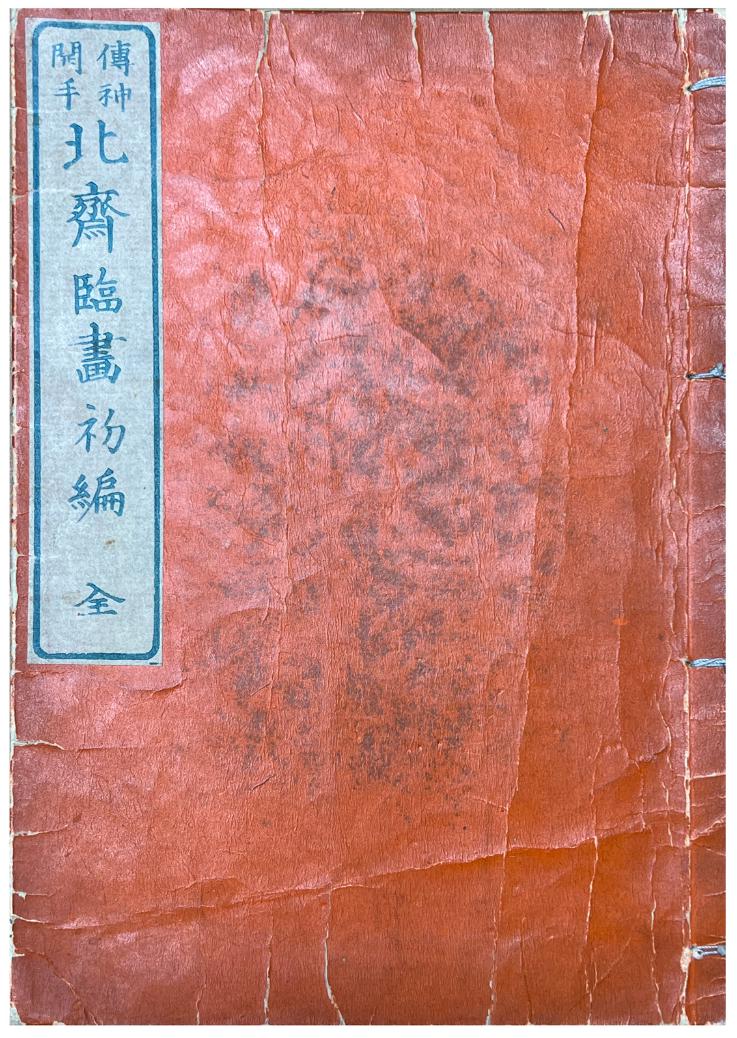 傳神
開手
北齋臨畫初編
全